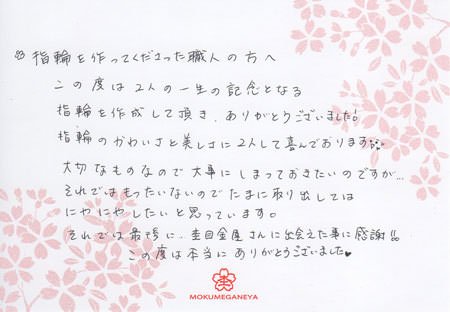 指輪を作ってくださった職人の方へ
この度は2人の一生の記念となる
指輪を作成して頂き、ありがとうございました!
指輪のかわいさと美しさに2人して喜んでおります
大切なものなので大事にしまっておきたいのですが…
それではもったいないのでたまに取り出しては
にやにやしたいと思っています。
それでは最後に…杢目金屋さんに出会えた事に感謝!!
この度は本当にありがとうございました♥
MOKUMEGANEYA